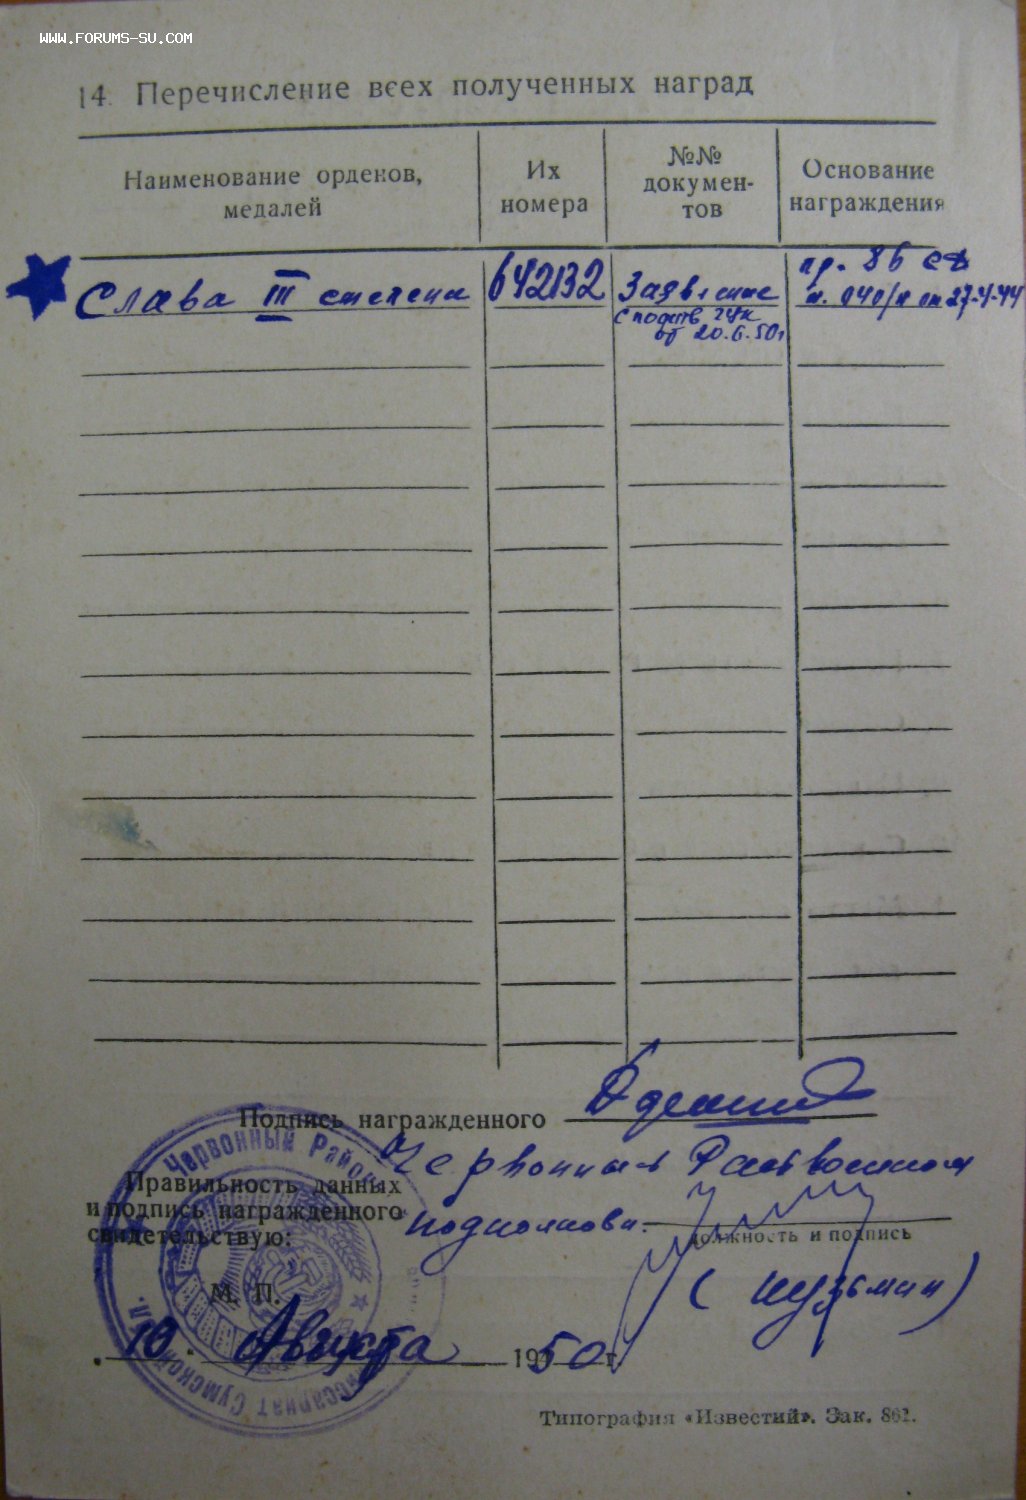 WWW.FORUMS-SU.COM
14. Перечисление всех полученных наград
Наименование орденов, медалей
Их номера
№№ докумен-тов
Основание награждения
Слава III степени
642132
Заявление
от 20.6.50г
пр. 86 сд
н. 040/н от 27-4-44
Подпись награжденного
Червонный Райвоенком
Правильность данных
и подпись награженного
свидетельствую:
подполковн.
должность и подпись
М. П.
(Кузьмин)
10 Августа 1950 г.
Червонный Район
иссариат Сумской
Типография «Известий». Зак. 862.